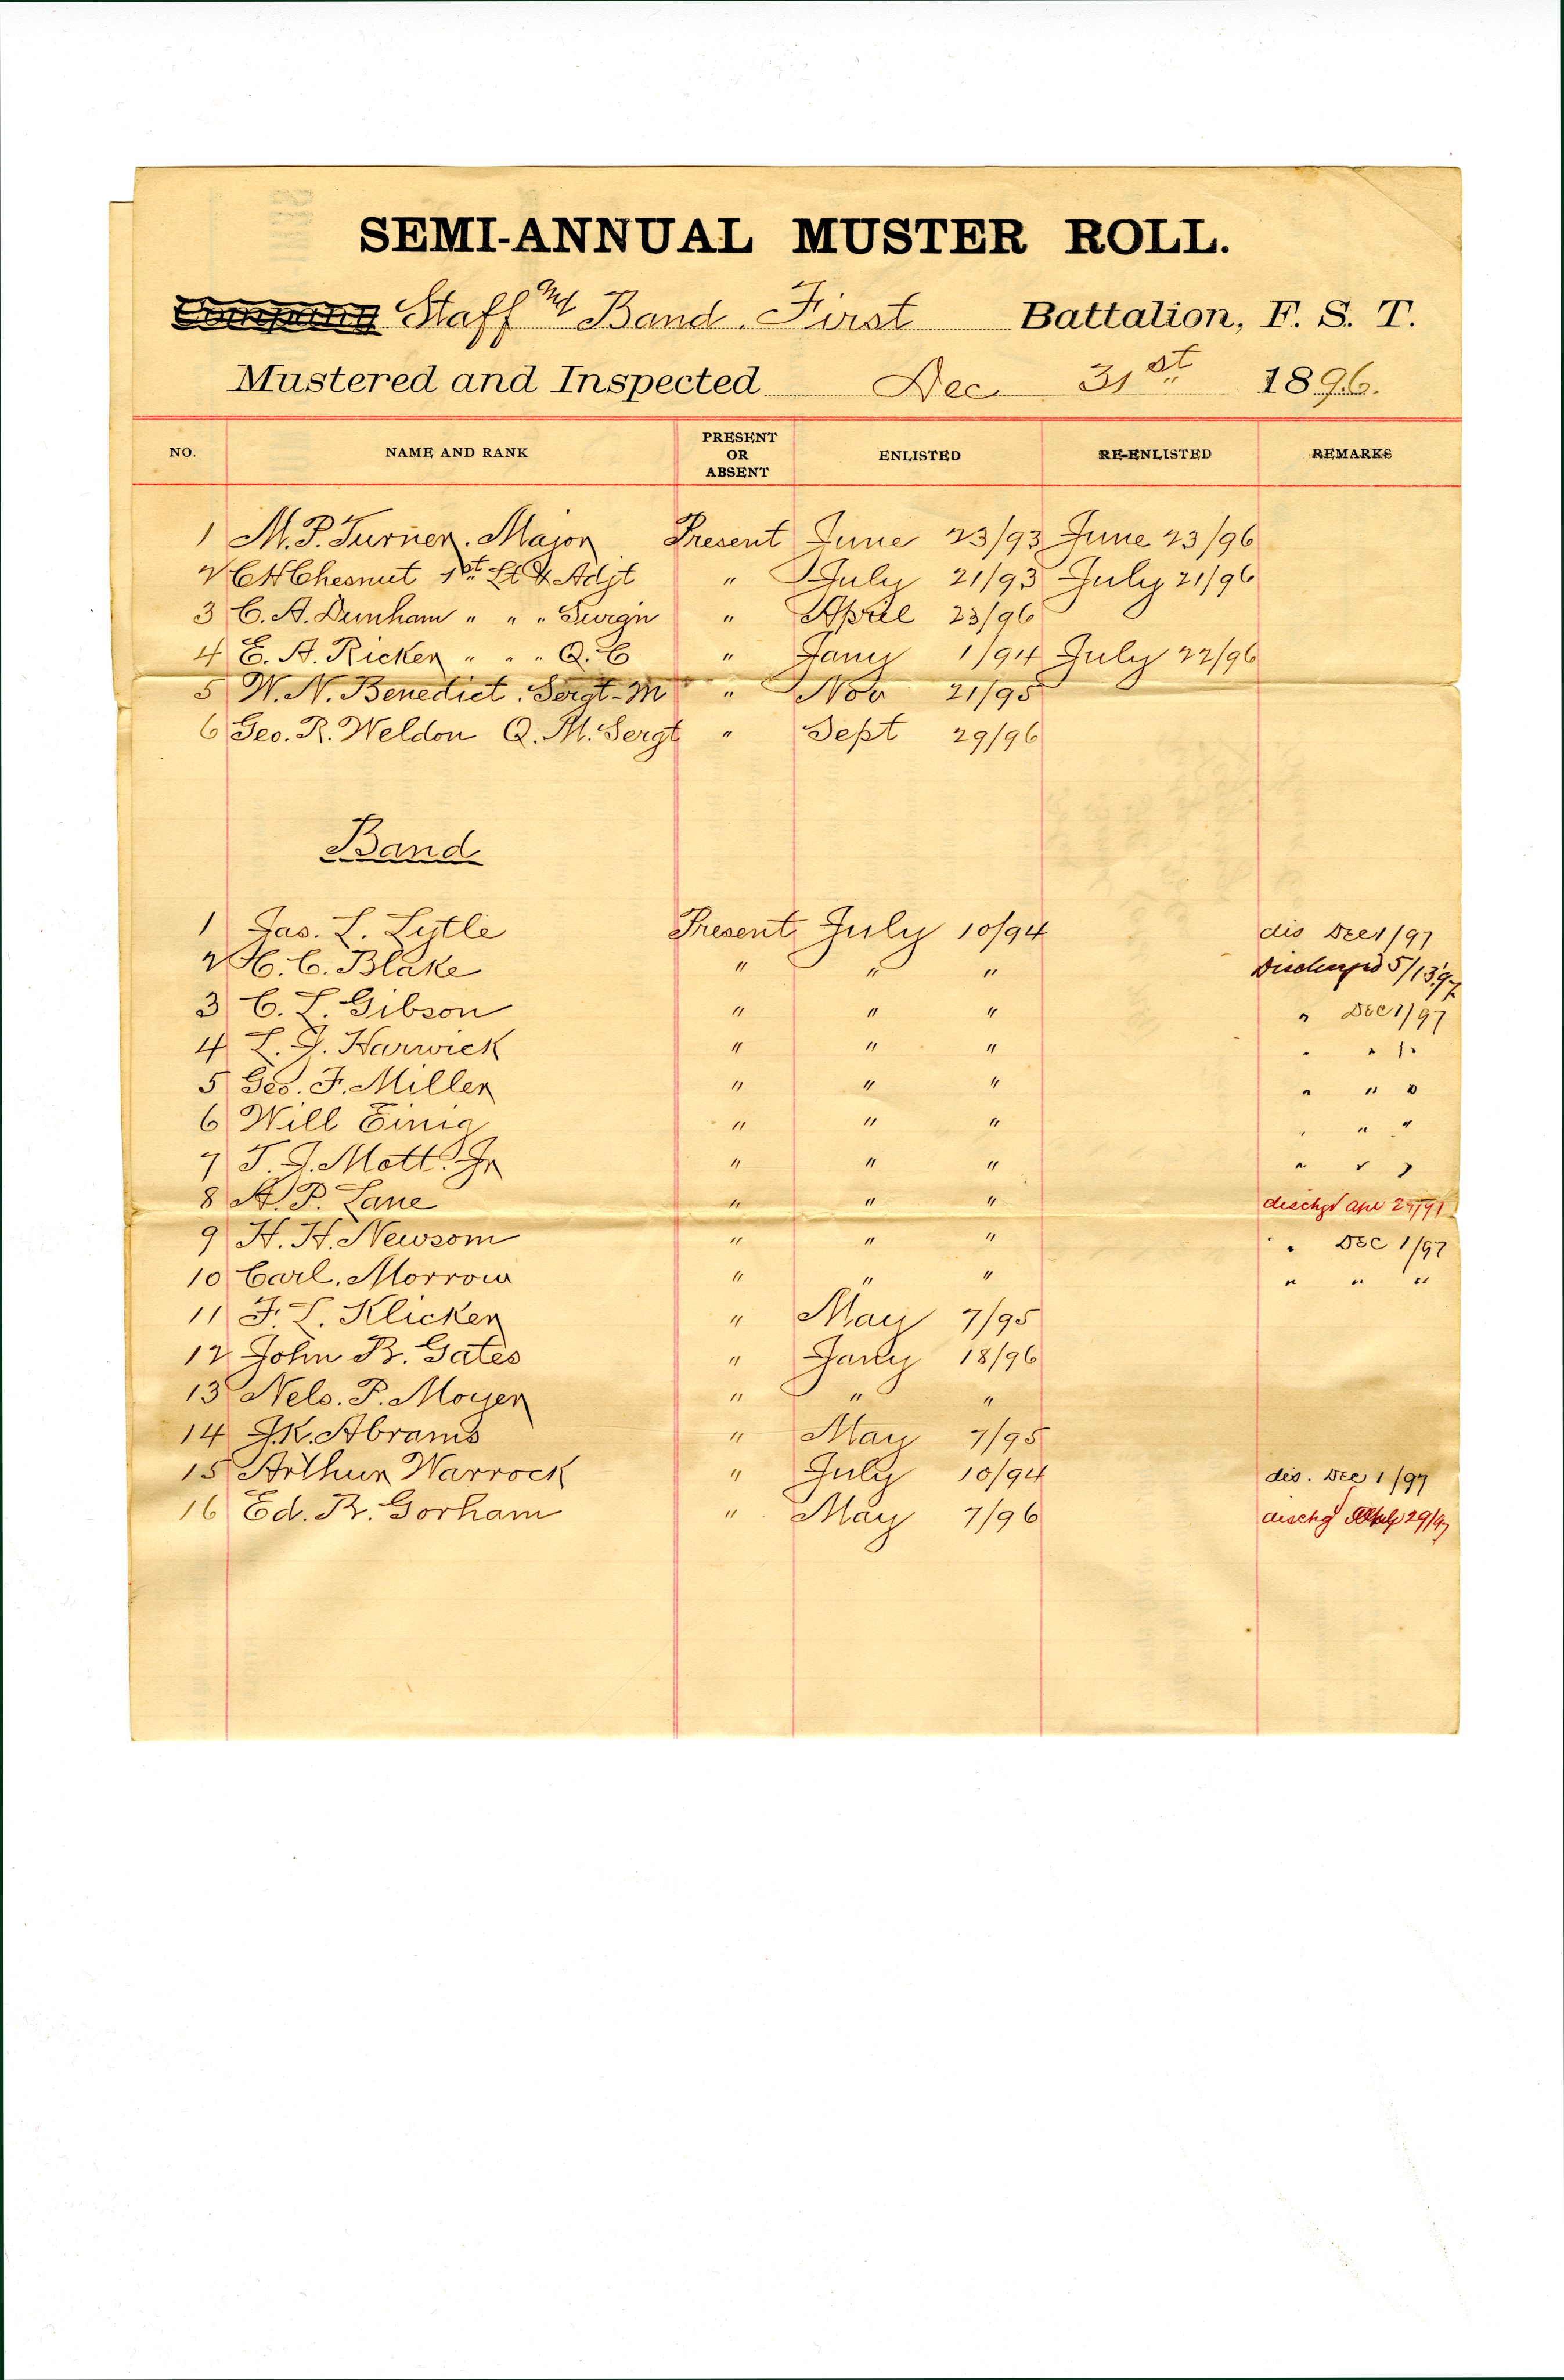 SEMI-ANNUAL MUSTER ROLL.
Company Staff and Band. First Battalion, F. S. T.
Mustered and Inspected Dec 31st 1896.
NO. NAME AND RANK PRESENT OR ABSENT ENLISTED RE-ENLISTED REMARKS
1 M. P. Turner. Major Present June 23/93 June 23/96
2 C H Chesnut 1st Lt & Adjt " July 21/93 July 21/96
3 C. A. Dunham " " " Surgn " April 23/96
4 E. A. Ricker " " " Q. C " Jany 1/94 July 22/96
5 W. N. Benedict. Sergt-M " Nov 21/95
6 Geo. R. Weldon Q. M. Sergt " Sept 29/96
Band
1 Jas. L. Lytle Present July 10/94 dis Dec 1/97
2 H. C. Blake " " " Discharged 5/13/97
3 C. L. Gibson " " " " Dec 1/97
4 L. J. Harwick " " " " " 1 "
5 Geo. F. Miller " " " " " "
6 Will Einig " " " " " "
7 T. J. Mott. Jr " " " " " "
8 A. P. Lane " " " dischgd Apr
9 H. H. Newsom " " " " DEC 1/97
10 Carl. Morrow " " " " " "
11 F. L. Klicker " May 7/95
12 John B. Gates " Jany 18/96
13 Nels. P. Moyer " " "
14 J. K. Abrams " May 7/95
15 Arthur Warrock " July 10/94 dis. Dec 1/97
16 Ed. R. Gorham " May 7/96 dischg 29/97